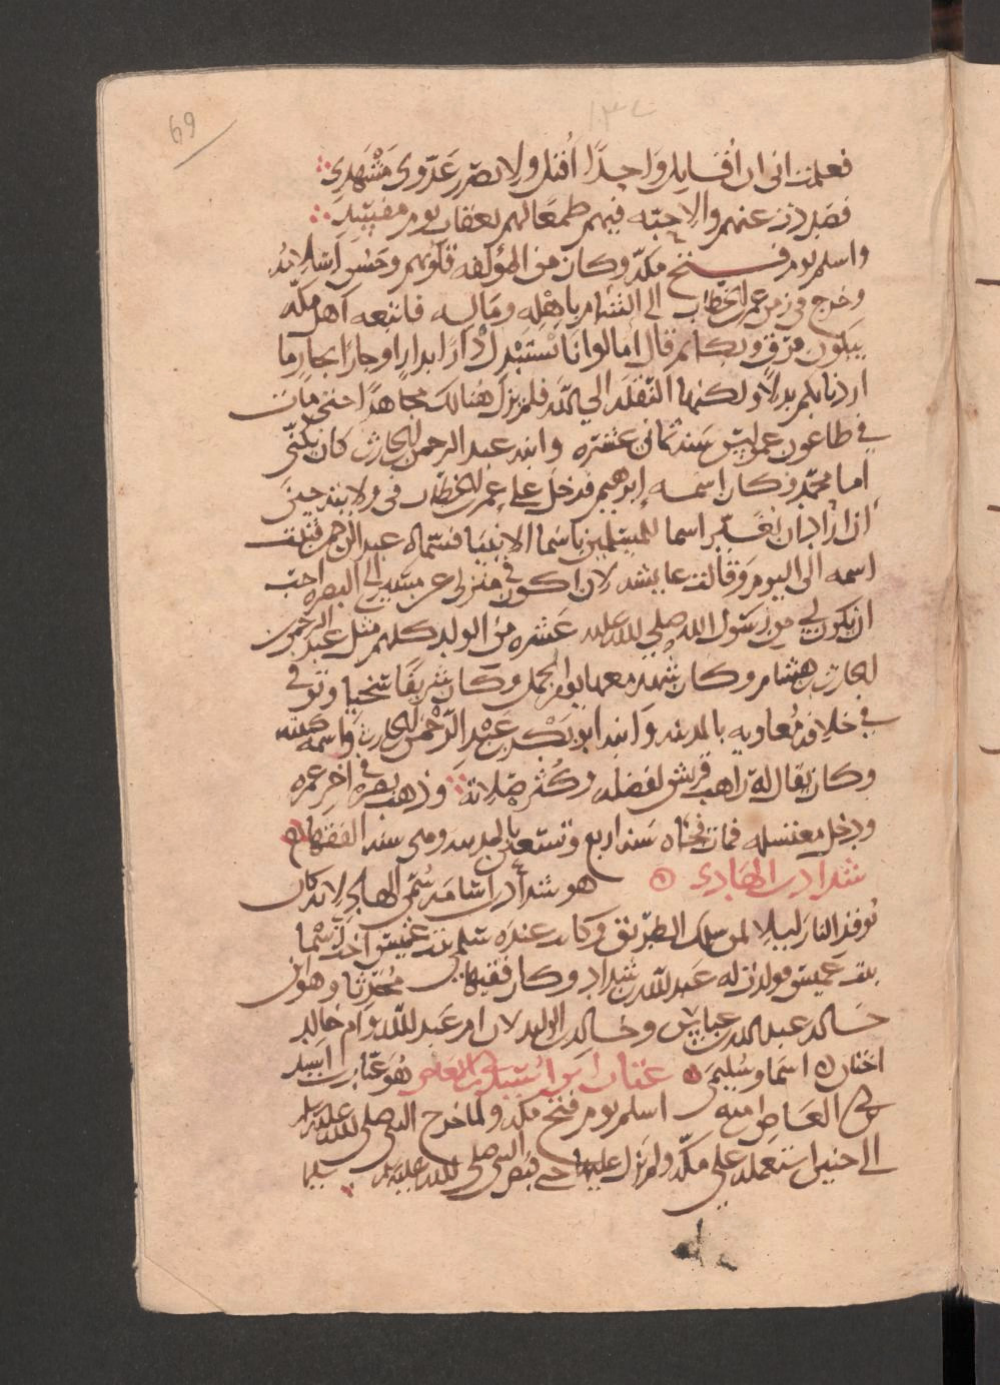 69
فعلمت انى ان اُقَاتِل وَاحِدًا اُقتل ولا يضرر عَدُوى مَشْهَدِى
فصددت عنهم والاحبّه فيهم طمعًا لهم بعقاب يوم مفسد
واسلم يوم فتح مكّه وكان من المؤلفه قلوبهم وحَسُن اسلامهُ
وخرج فى زمن عمر بن الخطاب الى الشام باهْلِه ومَاله فاتبعه اهل مكّه
يبكون فرقّ وبكا ثم قال اما لو انا نَسْتَبْدِل دَارًا بدارٍ او جارًا بجارٍ ما
اردنا بكم بدلًا ولكنها النّقله الى الله فلم يزل هُنالك مجاهدًا حتى مات
فى طاعون عمواس سنه ثمانى عشره وابنه عبد الرحمن بن الحارث كان يُكنّى
ابا محمّد وكان اسمه ابراهيم فدخل على عمر بن الخطاب فى ولايته حينَ
اراد ان يُغَيّر اسما المسلمين باسما الانبيا فسمّاه عبد الرحمن فثبت
اسمه الى اليوم وَقالت عايشه لان اكون فى منزلى عن مسيرى الى البصره احب
ان يكون لى من رسول الله صلى الله عليه عَشره من الولد كلهم مثل عبد الرحمن
بن الحارث بن هشام وكان شهد معها يوم الجمل وكان شريفًا سَخيا وتوفى
فى خلافه مُعاويه بالمدينه وَابنه ابو بَكْر بن عَبْدِ الرَّحْمن بن الحارث واسمه كنيته
وكان يقال له رَاهب قريش لفضله وكُثر صَلاته وذهب بصره فى اخر عمره
ودخل مغتسله فمات فُجَاه سَنه اربع وتسعين بالمدينه وهى سنه الفقها
شداد بن الهَادى هو شداد بن اسَامَه سُمّى الهادى لانه كان
يُوقد النار ليلا لمن سلك الطريق وكانت عنده سَلمى بنت عُميس اخت اسما
بنت عميس فولدت له عَبد الله بن شداد وكان فقيها مُحَدّثا وهو ابن
خَاله عبد الله بن عباس وخَالد بن الوليد لان ام عَبد الله وَام خالد
اختان اسمَا وسُليمى عتاب بن اَسِيد بن ابى العاص هُو عَتاب بن اسيد
بن ابى العَاص بن اميه اسلم يوم فتح مكه ولما خرج النبى صلى الله عليه
الى حنين استعمله على مكّه ولم يزل عليها حتى قبض النبى صلى الله عليه وسلم تسليما